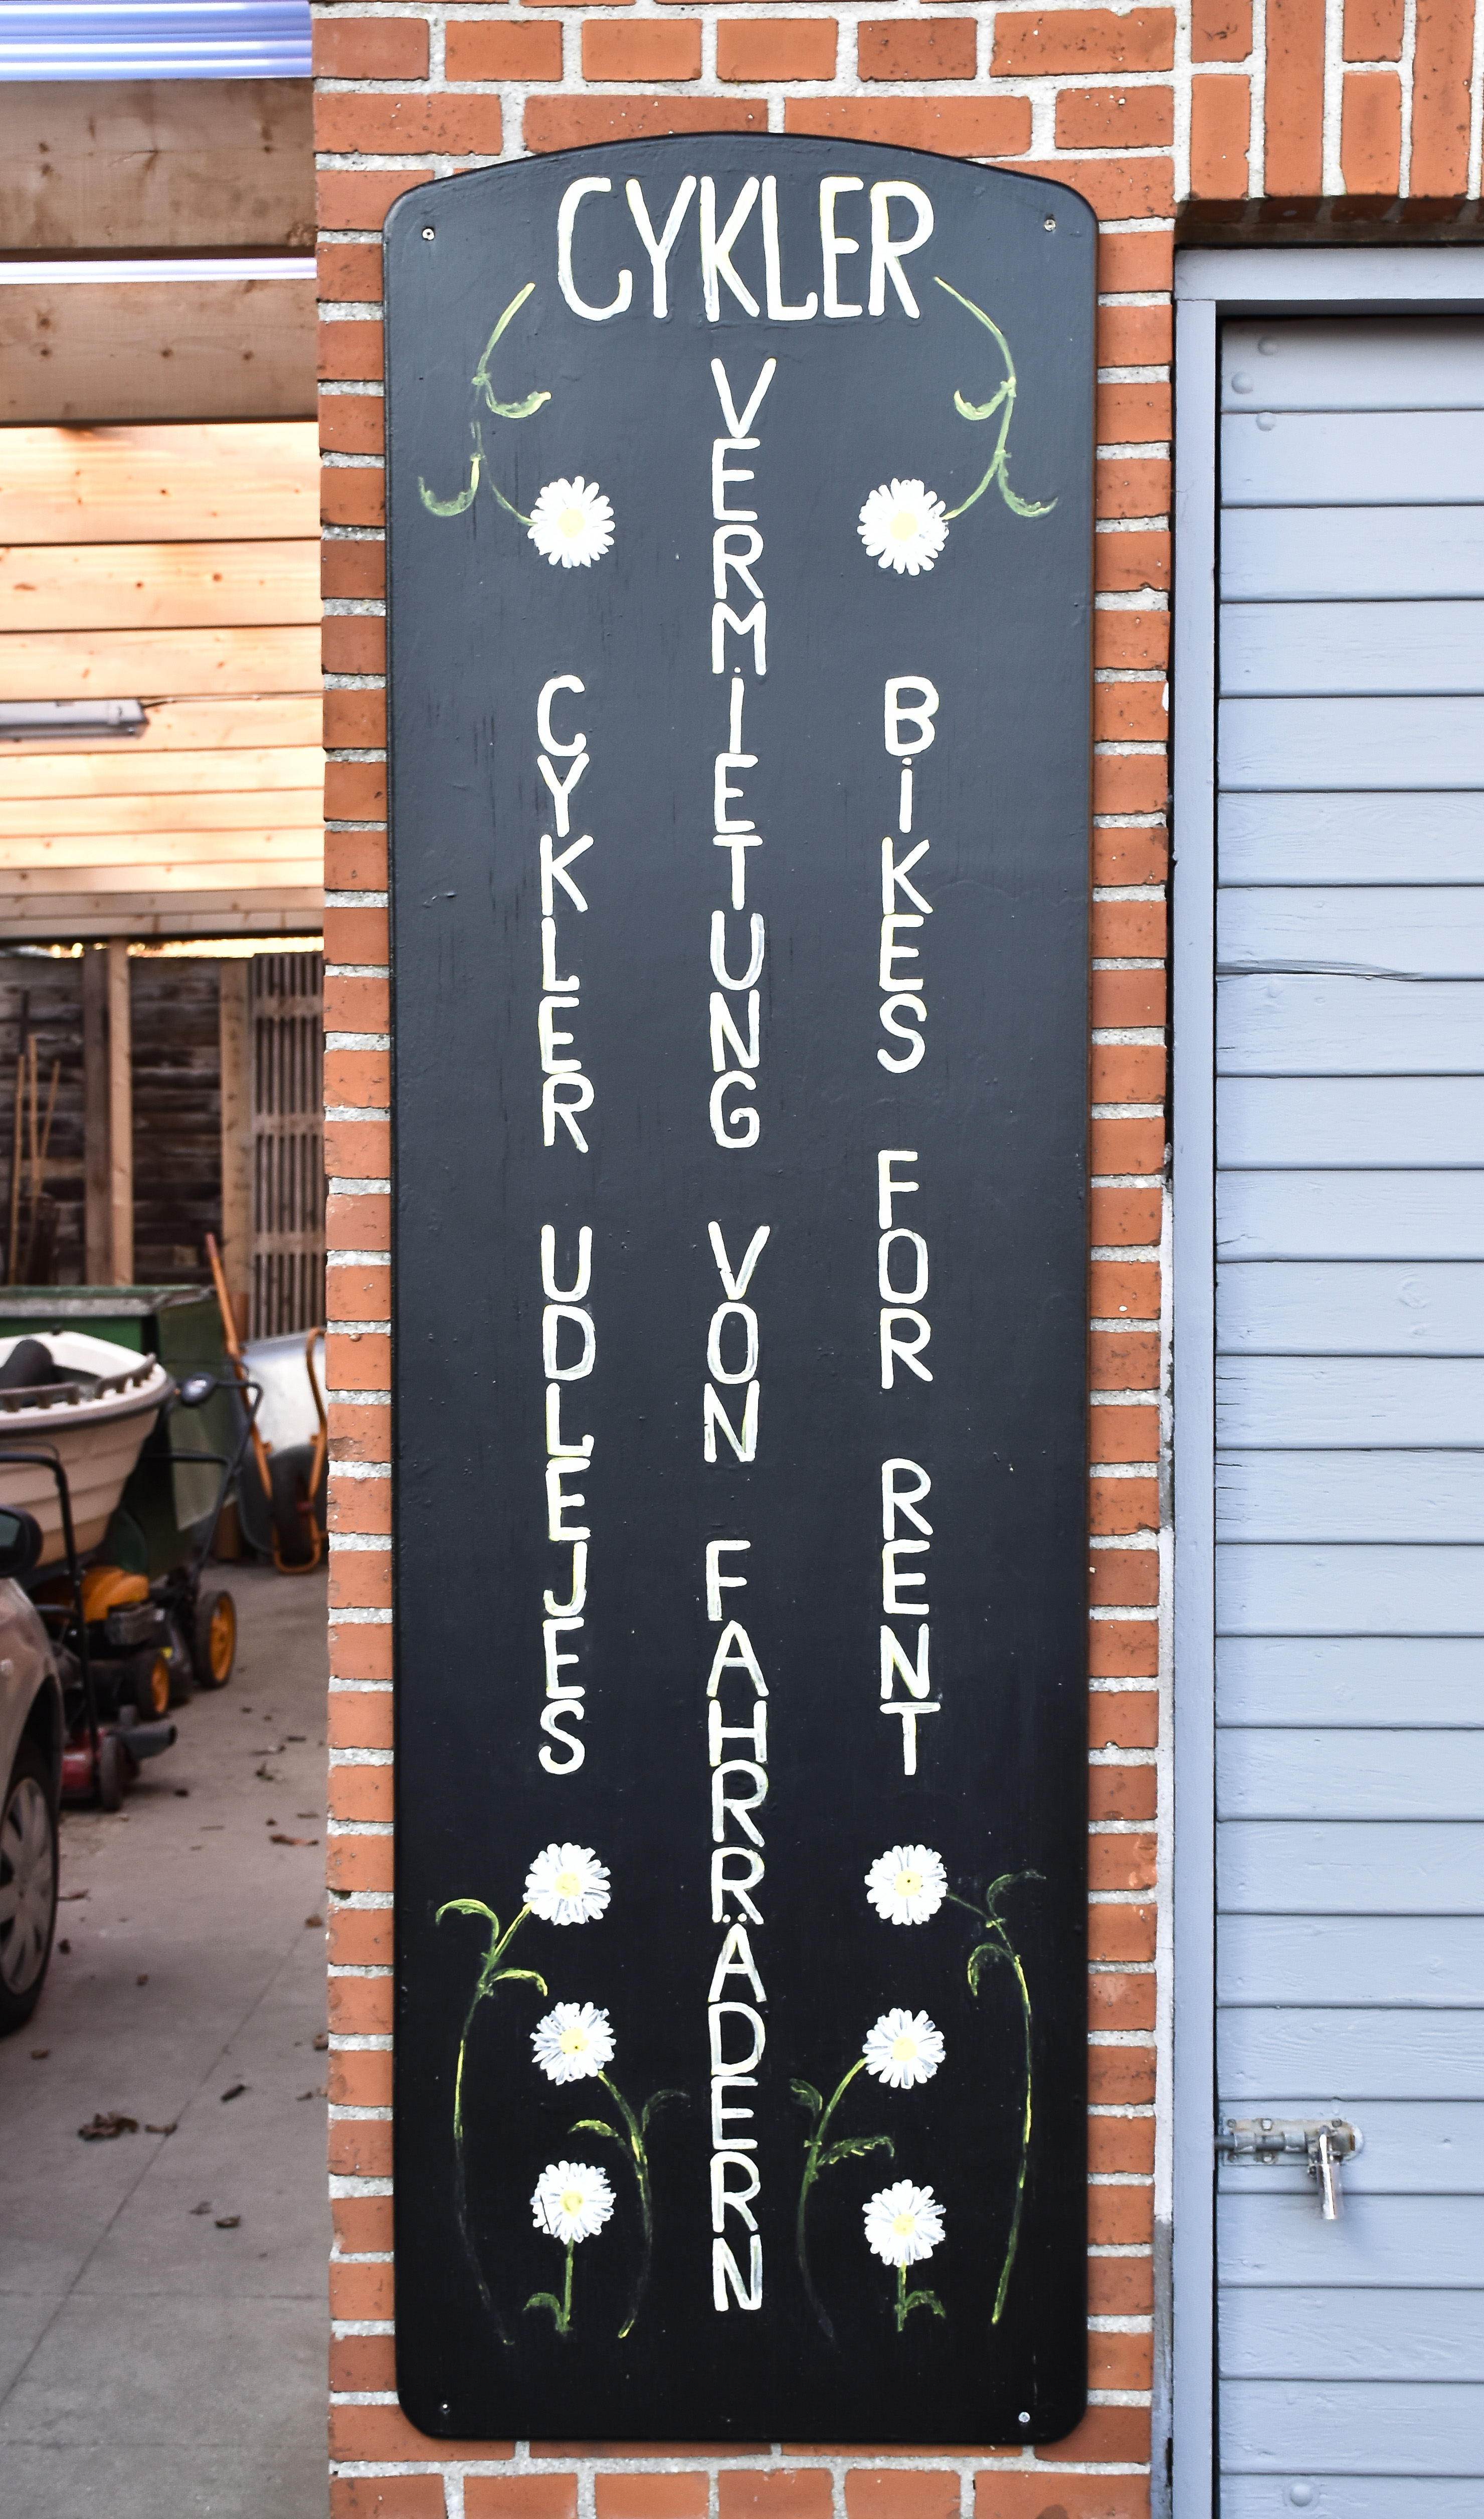 CYKLER
CYKLER UDLEJES
VERMiETUNG VON FAHRRÄDERN
BiKES FOR RENT